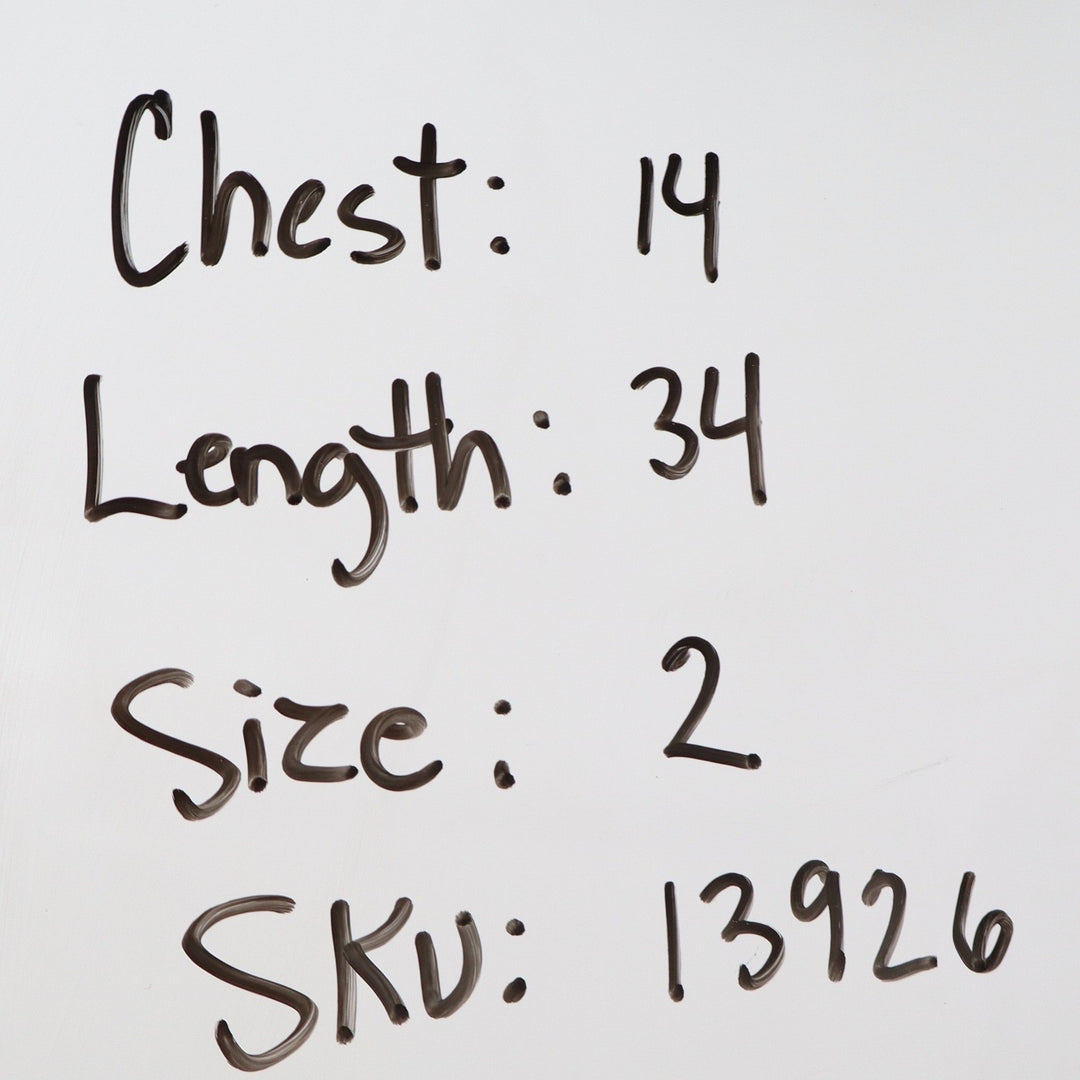 Chest: 14
Length: 34
Size: 2
SKU: 13926